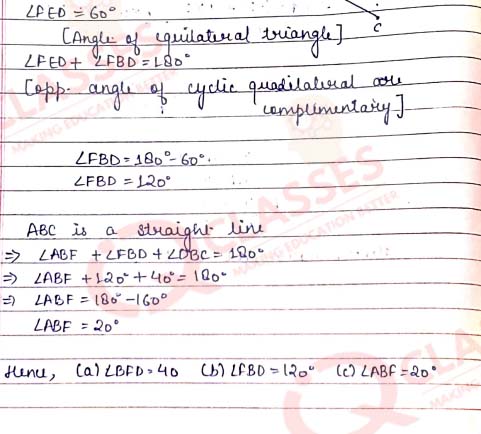 ∠FED = 60°
C
[Angle of equilateral triangle]
∠FED + ∠FBD = 180°
[opp. angle of cyclic quadilateral are
complimentary]
∠FBD = 180° - 60°.
∠FBD = 120°
ABC is a straight line
⇒ ∠ABF + ∠FBD + ∠DBC = 180°
⇒ ∠ABF + 120° + 40° = 180°
⇒ ∠ABF = 180° - 160°
∠ABF = 20°
Hence, (a) ∠BFD = 40 (b) ∠FBD = 120° (c) ∠ABF = 20°
CLASSES
MAKING EDUCATION BETTER